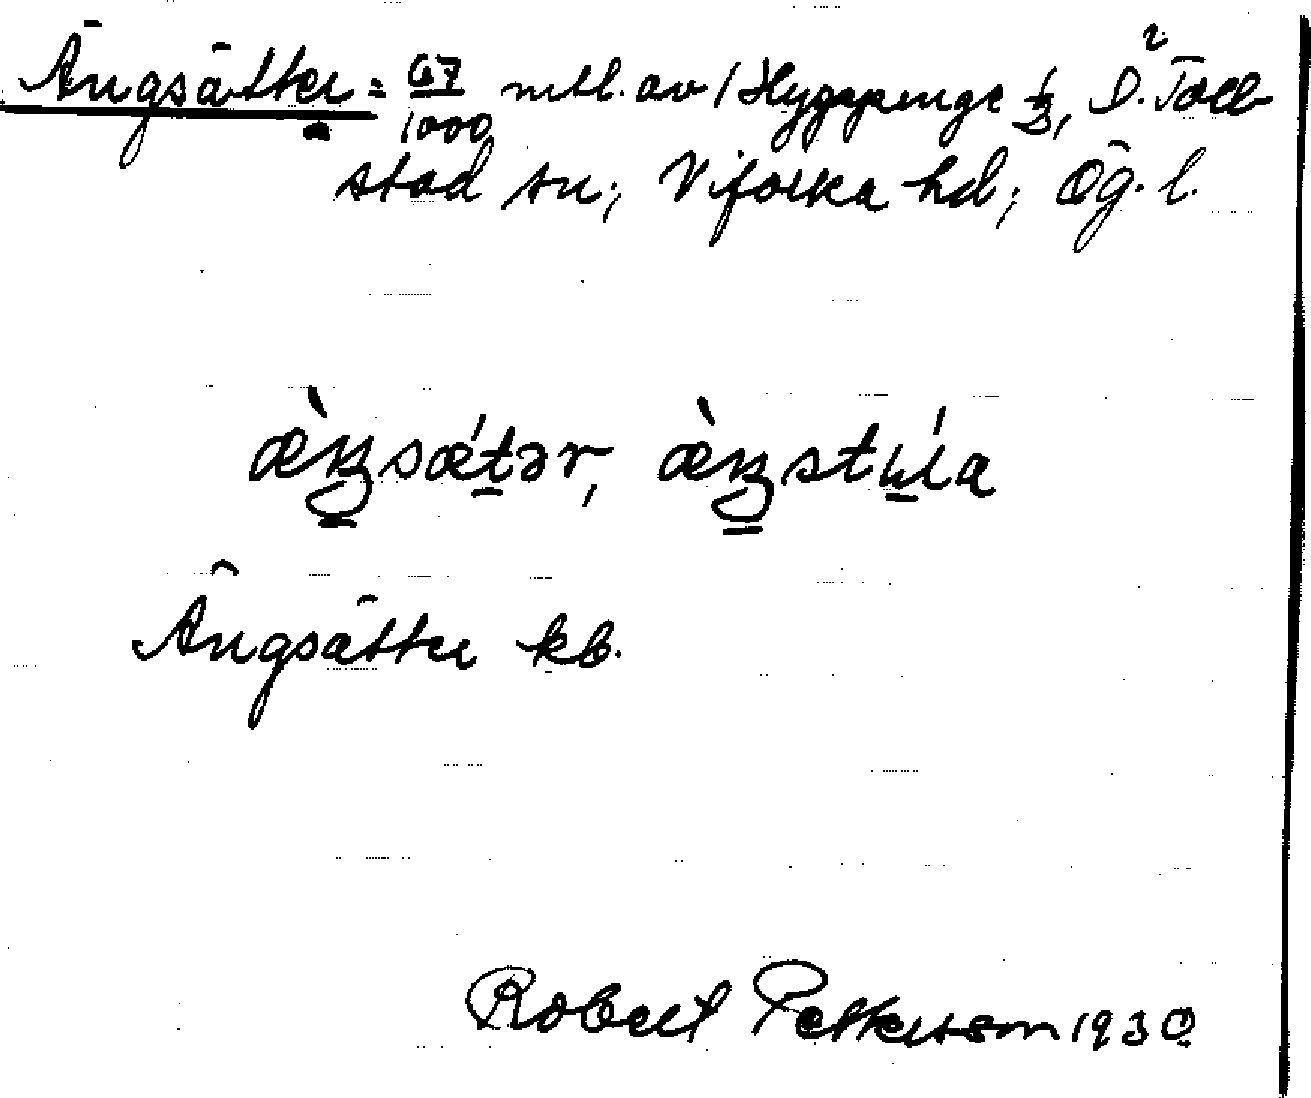 Ängsätter = 67/1000 mtl. av / Hygpinge 1/3, S. Toll
stad sn; Vifolka hd; Ög. l.
æ̀ŋsǽtər, æ̀ŋstúla
Ängsätter kb.
Robert Pettersson 1930